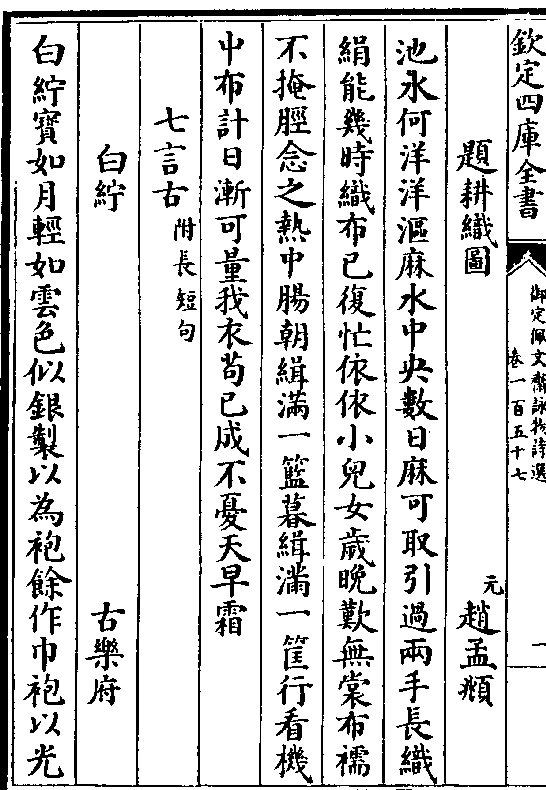 欽定四庫全書
御定佩文齋詠物詩選
卷一百五十七
一
題耕織圖
元
趙孟頫
池水何洋洋漚麻水中央數日麻可取引過兩手長織
絹能幾時織布已復忙依依小兒女歲晚歎無裳布襦
不掩脛念之熱中腸朝緝滿一籃暮緝滿一筐行看機
中布計日漸可量我衣苟已成不憂天早霜
七言古附長短句
白紵
古樂府
白紵寳如月輕如雲色似銀製以為袍餘作巾袍以光